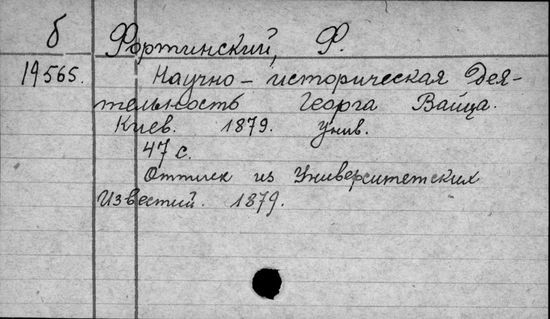 б Фортинский, Ф.
19565. Научно-историческая дея-
тельность Георга Вайца.
Киев. 1879. Унив.
47 с.
Оттиск из Университетских
Известий. 1879.